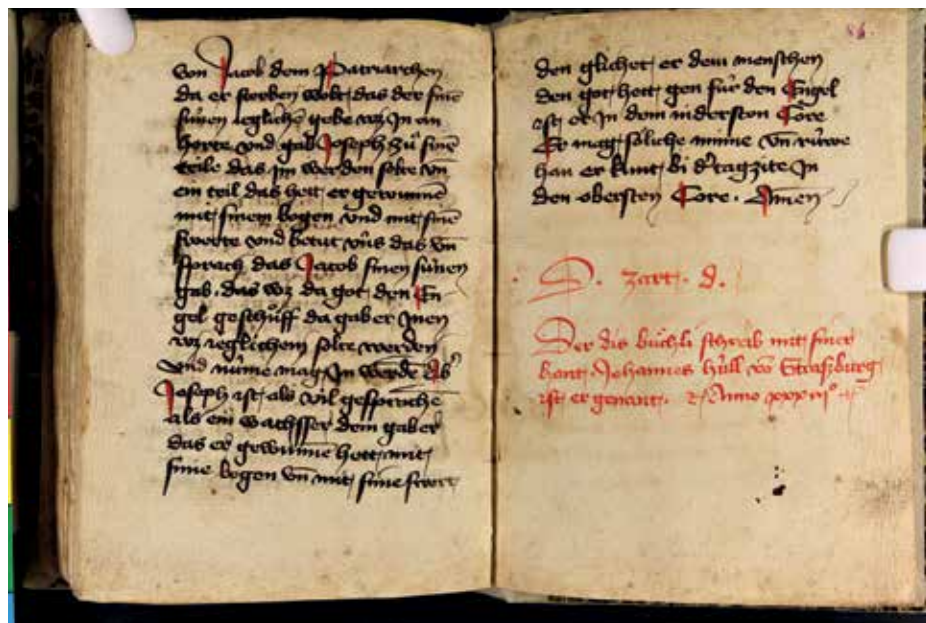 von Jacob dem Patriarchen
da er sterben wolt, das der sinē
sünen ieglichē gebe wz In an
horte vnd gab Joseph zů sinē
teile das im werden solte vn̄
ein teil das hett er gewunnē
mit sinem bogen vnd mit sinē
swerte vnd betut vns das vn̄
sprach das Jacob sinen sünen
gab. das wz da got den En-
gel geschůff da gab er Inen
wz ieglichem solte werden
vnd nüme mag In werdē
Joseph ist als vil gesprochē
als ein wachsser dem gab er
das er gewunnē hett mit
sinē bogen vn̄ mit sinē swert
86
den glichet er dem menschen
den got hett gen für den Engel
ist er In dem nidersten Core
Er mag soliche minne vn̄ rüwe
han er kunt bi d' tagzite In
den obersten Core. Amen
D. zart. d.
Der dis büchli schreib mit siner
hant Johannes hüll vō Straszburg
ist er genant. Anno xxxiijº